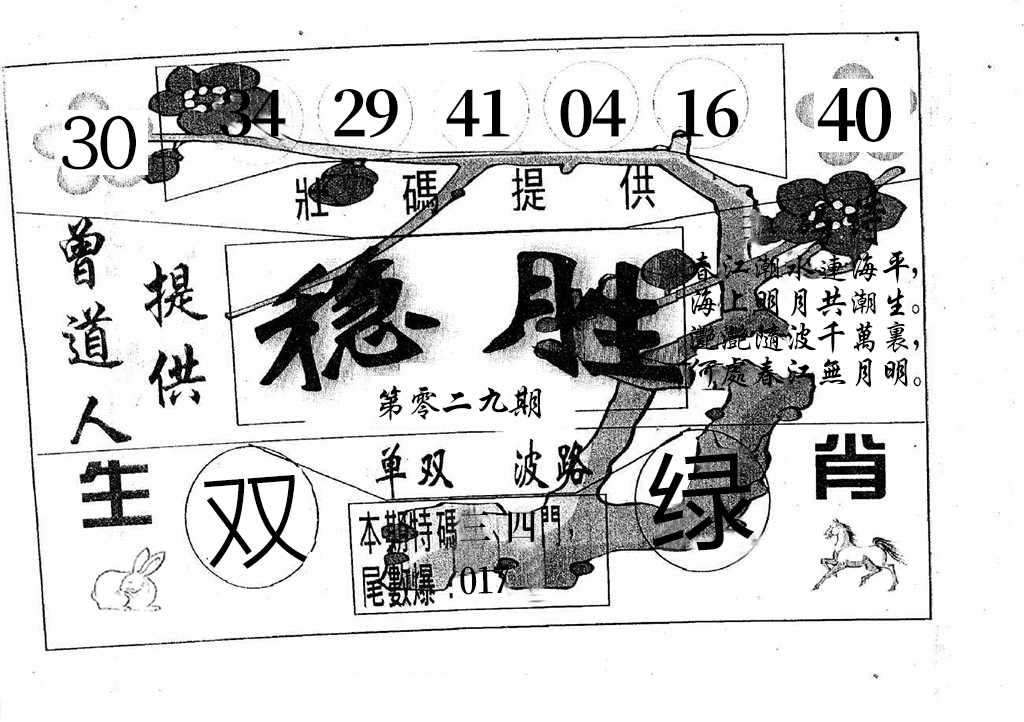 30 34 29 41 04 16 40
壯碼提供
特
曾道人
提供
稳胜
第零二九期
春江潮水連海平，
海上明月共潮生。
灧灧隨波千萬裏，
何處春江無月明。
生
双
单双 波路
绿
肖
本期特碼三、四門，
尾數爆：017